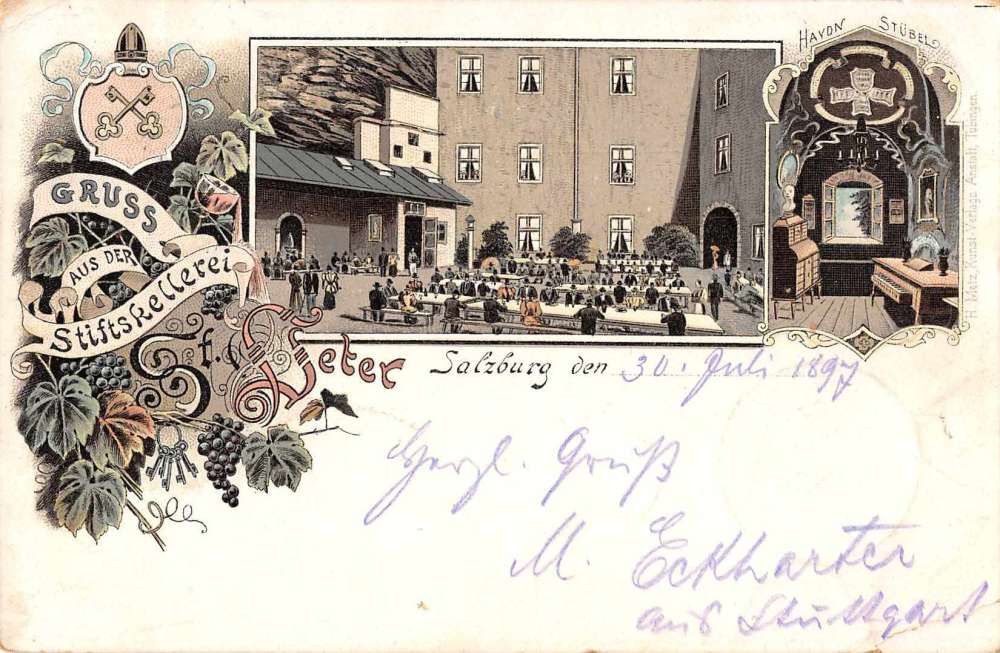 GRUSS
AUS DER
Stiftskellerei
St. Peter
HAYDN STÜBEL
H. Metz, Kunst-Verlags-Anstalt, Tübingen.
Salzburg den 30. Juli 1897
Herzl. Gruß
M. Eckharter
aus Stuttgart